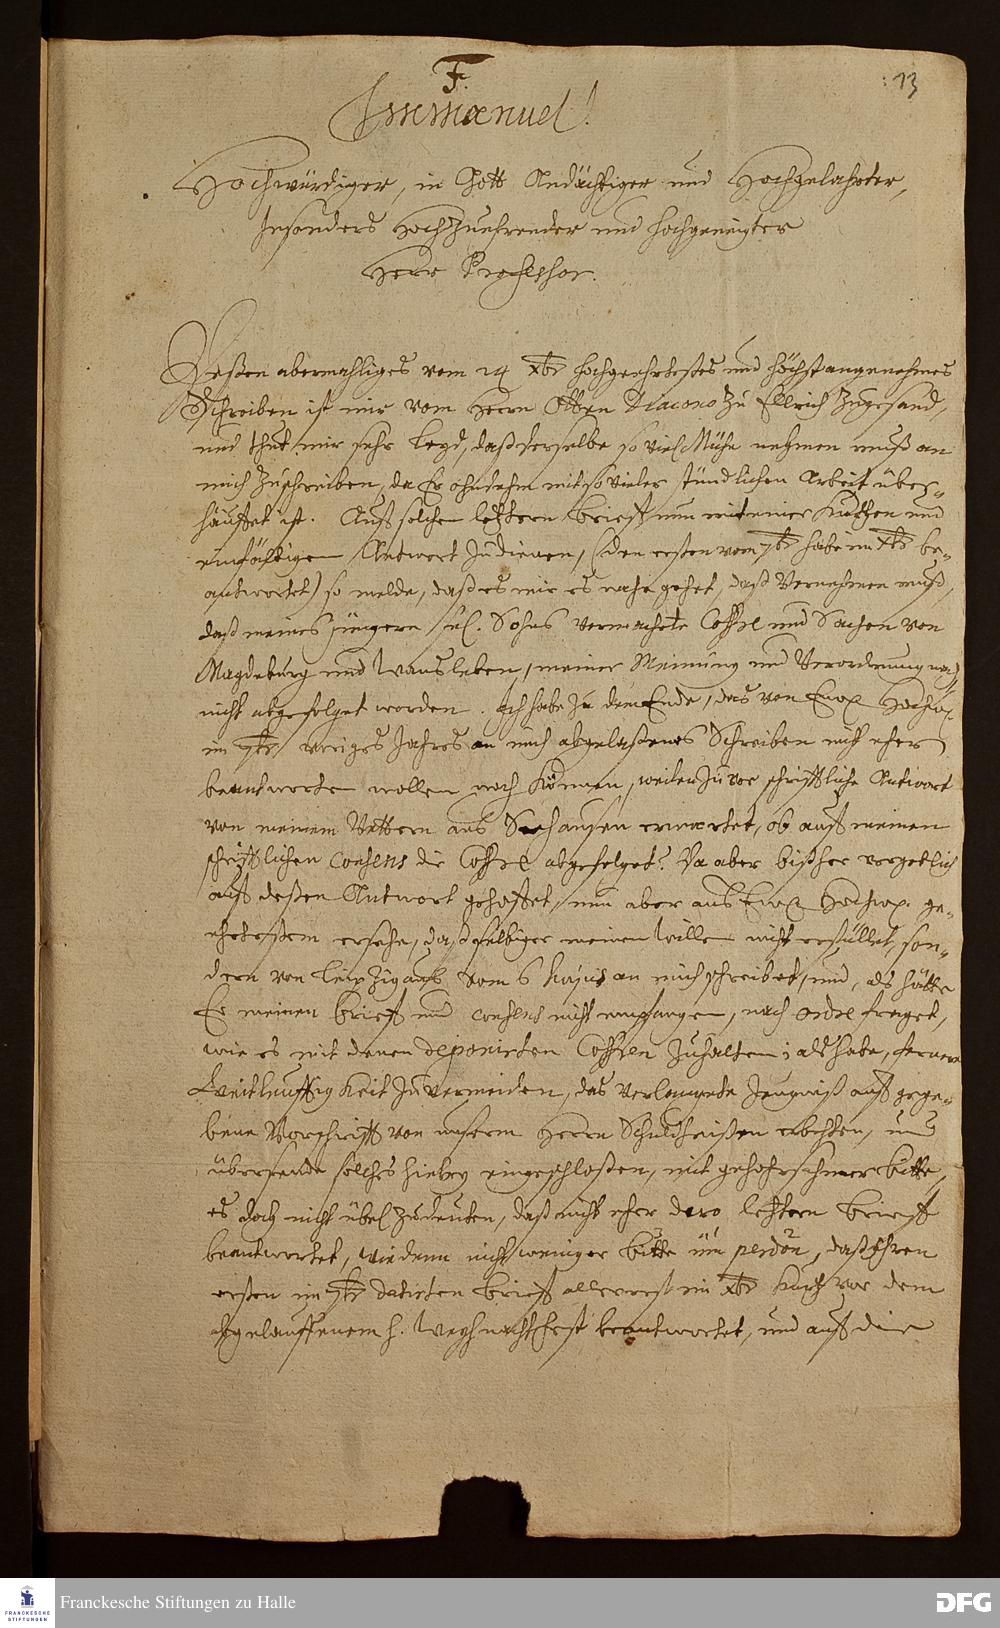 F.
: 13
Immanuel!
Hochwürdiger, in Gott Andächtiger und Hochgelahrter,
Insonders Hochzuehrender und hochgeneigter
Herr Professor.
Deßen abermahliges vom 24 Xbr hochgeehrtestes und höchst angenehmes
Schreiben ist mir vom Herrn Otten Diacono zu Ellrich zugesand,
und thut mir sehr leyd, daß derselbe so viel Mühe nehmen muß an
mich zuschreiben, da Er ohnedehm mit so vieler stündlichen Arbeit über-
häuffet ist. Auf solchen letztern brieff nun mit einer kurtzen und
einfältigen Antwort zudienen, (den ersten vom 7br habe im Xbr be-
antwortet) so melde, daß es mir es nahe gehet, daß Vernehmen muß,
daß meines jüngern sel. Sohns vermachte Coffre und Sachen von
Magdeburg und Wansleben, meiner Meinung und Verordnung nach
nicht abgefolget worden. Ich habe zu dem Ende, das von Ew. Hochw.
im 7br voriges Jahres an mich abgelaßenes Schreiben nicht eher
beantworten wollen noch können, weilen zuvor schrifftliche Antwort
von meinem Vettern aus Seehausen erwartet, ob auff meinen
schrifftlichen Consens die Coffre abgefolget? Da aber bißher vergeblich
auff deßen Antwort gehoffet, nun aber aus Ew. Hochw. ge-
ehrtestem ersehe, daß selbiger meinen Willen nicht erfüllet, son-
dern von Leipzig auß vom 6 hujus an mich schreibet, und, als hätte
Er meinen brieff und consens nicht empfangen, nach ordre fraget,
wie es mit denen deponirten Coffren zuhalten; als habe, fernere
Weitleuffigkeit zuvermeiden, das verlangete Zeugniß auff gege-
bene Vorschrifft von unserm Herrn Schuldheißen erbethen, und
übersende solches hiebey eingeschloßen, mit gehohrsahmer bitte,
es doch nicht übel zudeuten, daß nicht eher dero letztern brieff
beantwortet, wie denn nicht weniger bitte üm perdon, daß Ihren
ersten im 7br datirten brieff allererst im Xbr kurtz vor dem
abgelauffenem h. Weyhnachtfest beantwortet, und auff die
Franckesche Stiftungen zu Halle
FRANCKESCHE
STIFTUNGEN
DFG